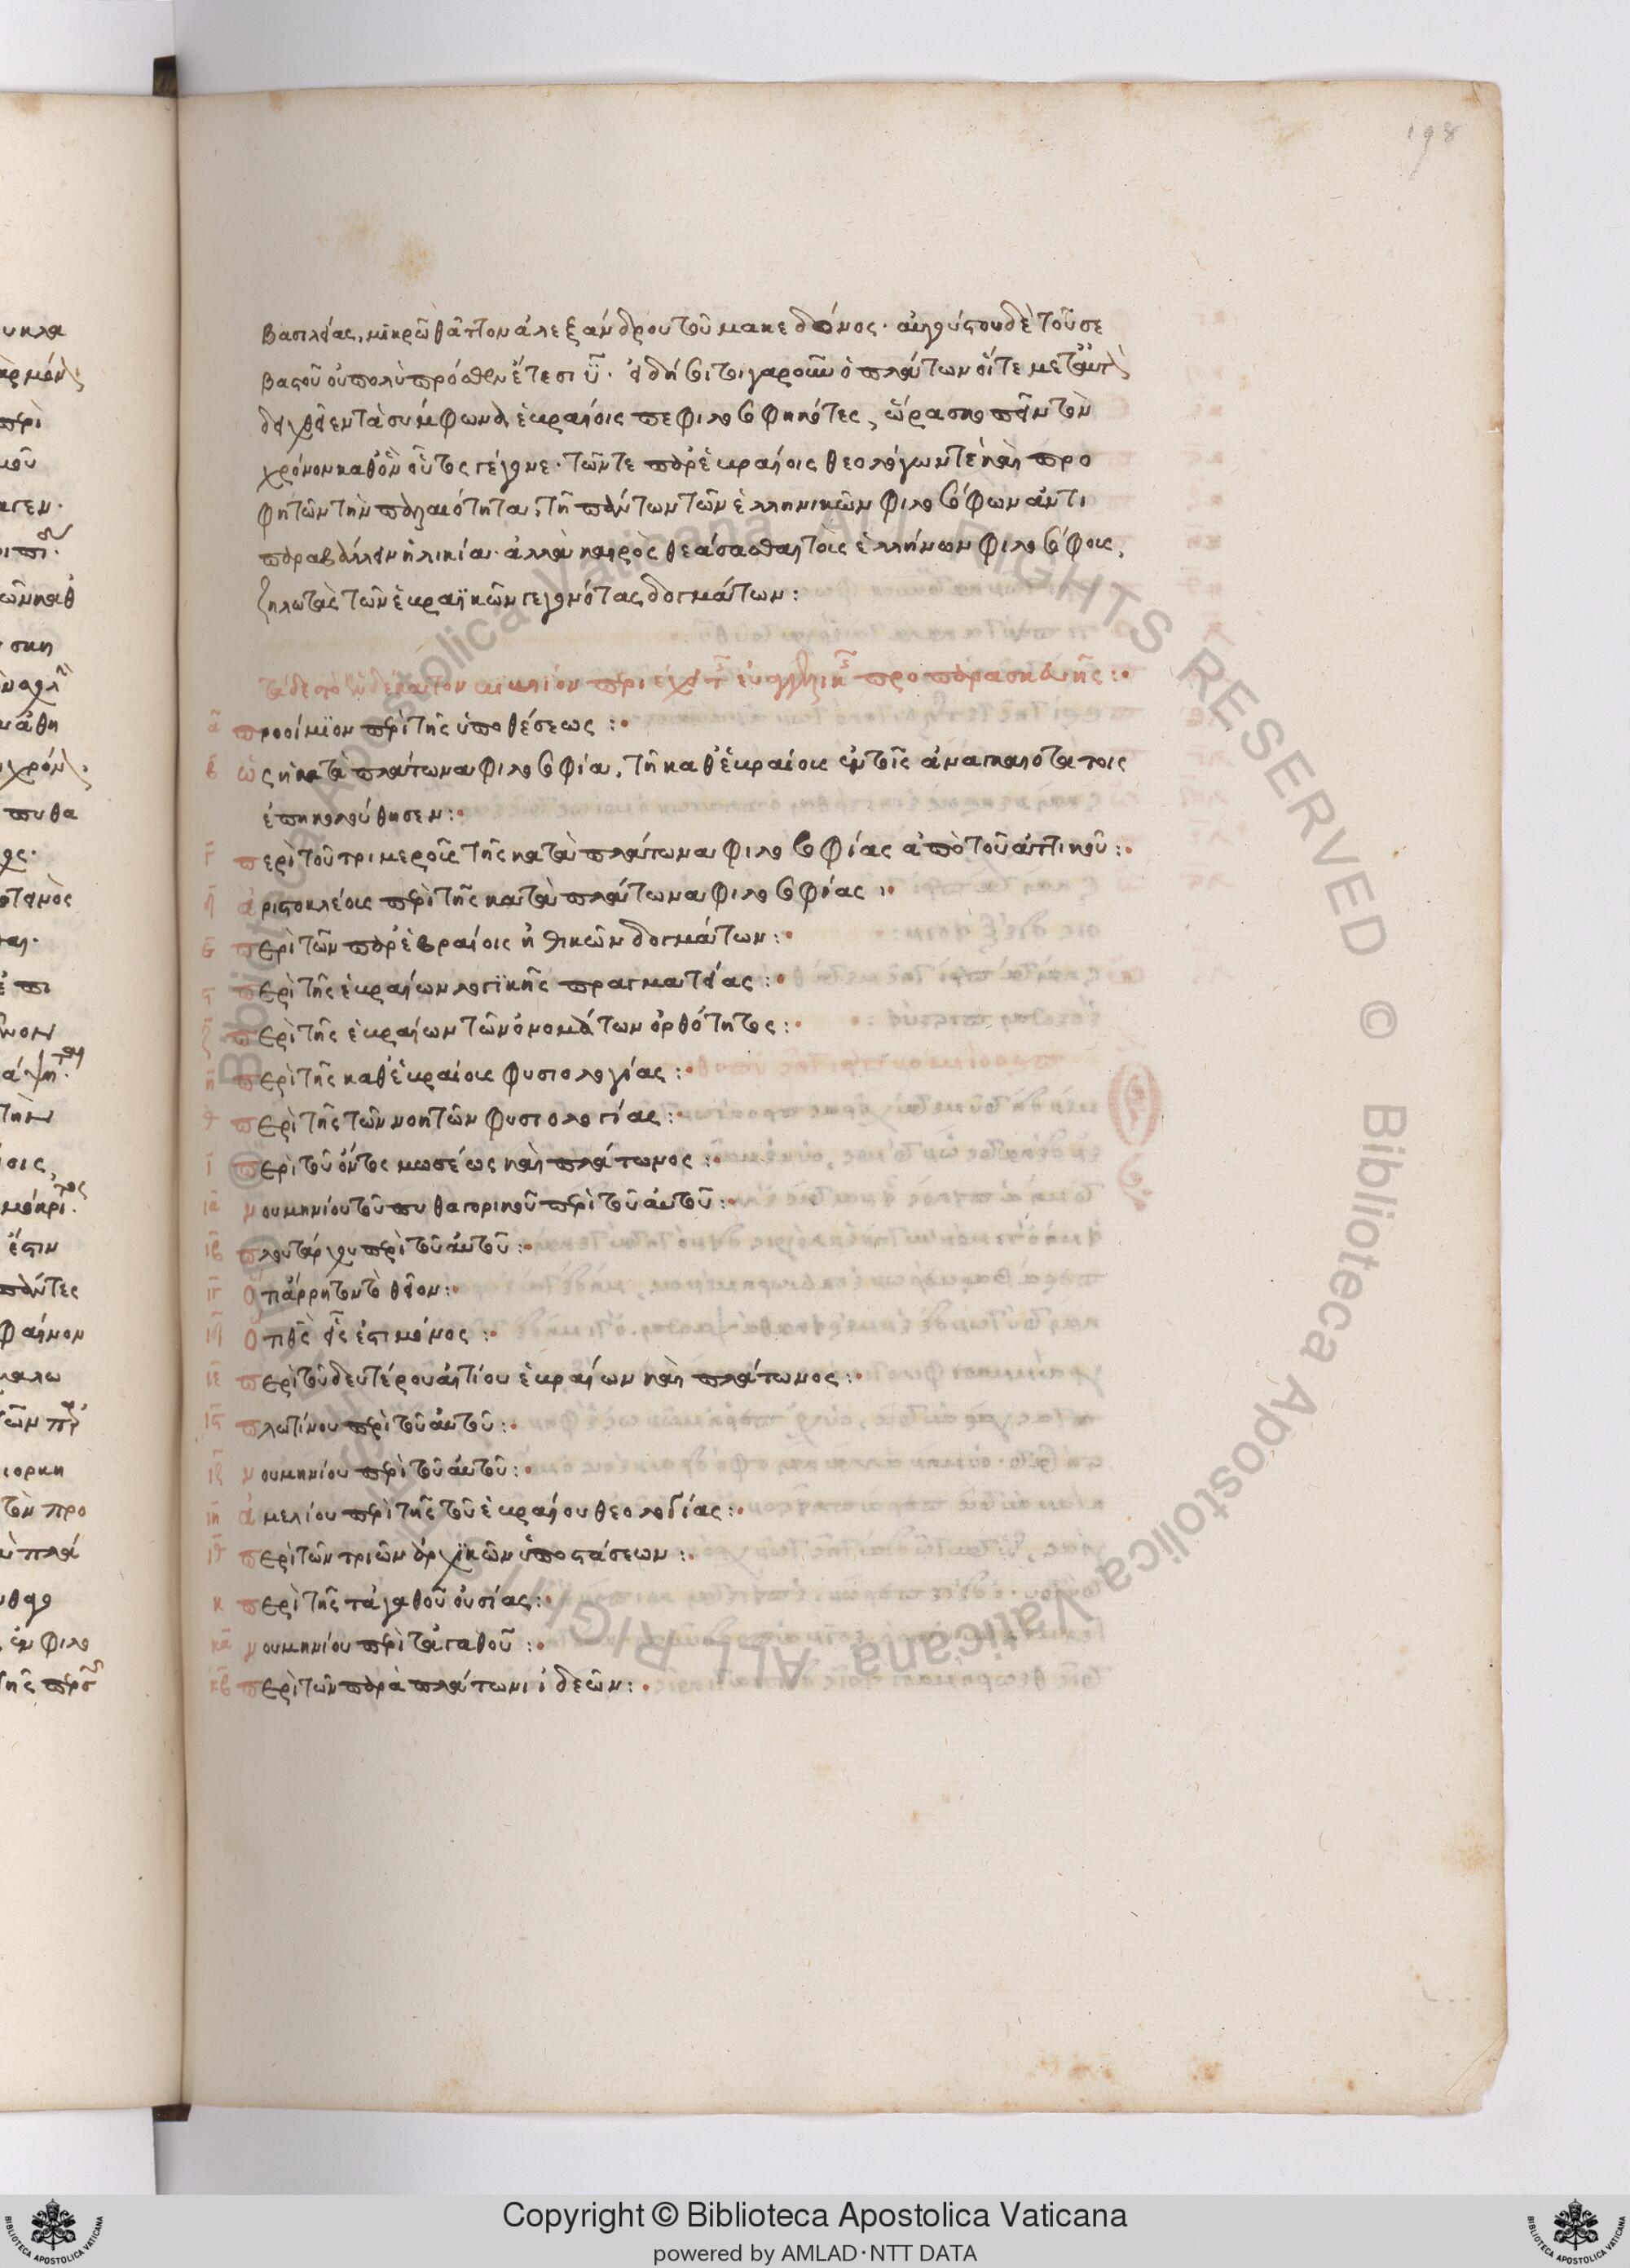 198
βασιλείας, μικρῶ θᾶττον ἀλεξάνδρου τοῦ μακεδόνος· αὐγούστου δὲ τοῦ σε
βαστοῦ οὐ πολὺ πρόσθεν ἔτεσι ϋ·
δειχθεῖεν τὰ σύμφωνα ἑβραίοις πεφιλοσοφηκότες, ὥρα σκοπεῖν τὸν
χρόνον καθ' ὃν οὗτος γέγονε· τῶν τε παρ' ἑβραίοις θεολόγων τὲ καὶ προ
φητῶν τὴν παλαιότητα, τῆ πάντων τῶν ἑλληνικῶν φιλοσόφων ἀντι
παραβάλλειν ἡλικία· ἀλλὰ καιρὸς θεάσασθαι τοὺς ἑλλήνων φιλοσόφους,
ζηλωτὰς τῶν ἑβραϊκῶν γεγονότας δογμάτων:
τάδε τὸ ἑνδέκατον βιβλίον περιέχει τῆς εὐαγγελικῆς προπαρασκευῆς:
α προοίμιον περὶ τῆς ὑποθέσεως:
β ὡς ἡ κατὰ πλάτωνα φιλοσοφία, τῆ καθ' ἑβραίους ἐν τοῖς ἀναγκαιοτάτοις
ἐπηκολούθησεν:
γ περὶ τοῦ τριμεροῦς τῆς κατὰ πλάτωνα φιλοσοφίας ἀπὸ τοῦ ἀττικοῦ:
δ ἀριστοκλέους περὶ τῆς κατὰ πλάτωνα φιλοσοφίας:
ε περὶ τῶν παρ' ἑβραίοις ἠθικῶν δογμάτων:
ς περὶ τῆς ἑβραίων λογικῆς πραγματείας:
ζ περὶ τῆς ἑβραίων τῶν ὀνομάτων ὀρθότητος:
η περὶ τῆς καθ' ἑβραίους φυσιολογίας:
θ περὶ τῆς τῶν νοητῶν φυσιολογίας:
ι περὶ τοῦ ὄντος μωσέως καὶ πλάτωνος:
ια νουμηνίου τοῦ πυθαγορικοῦ περὶ τοῦ αὐτοῦ:
ιβ πλουτάρχου περὶ τοῦ αὐτοῦ:
ιγ ὅτι ἄρρητον τὸ θεῖον:
ιδ ὅτι θεὸς εἷς ἐστι μόνος:
ιε περὶ τοῦ δευτέρου αἰτίου ἑβραίων καὶ πλάτωνος:
ις πλωτίνου περὶ τοῦ αὐτοῦ:
ιζ νουμηνίου περὶ τοῦ αὐτοῦ:
ιη ἀμελίου περὶ τῆς τοῦ ἑβραίου θεολογίας:
ιθ περὶ τῶν τριῶν ἀρχικῶν ὑποστάσεων:
κ περὶ τῆς τἀγαθοῦ οὐσίας:
κα νουμηνίου περὶ τἀγαθοῦ:
κβ περὶ τῶν παρὰ πλάτωνι ἰδεῶν:
Copyright © Biblioteca Apostolica Vaticana
powered by AMLAD·NTT DATA